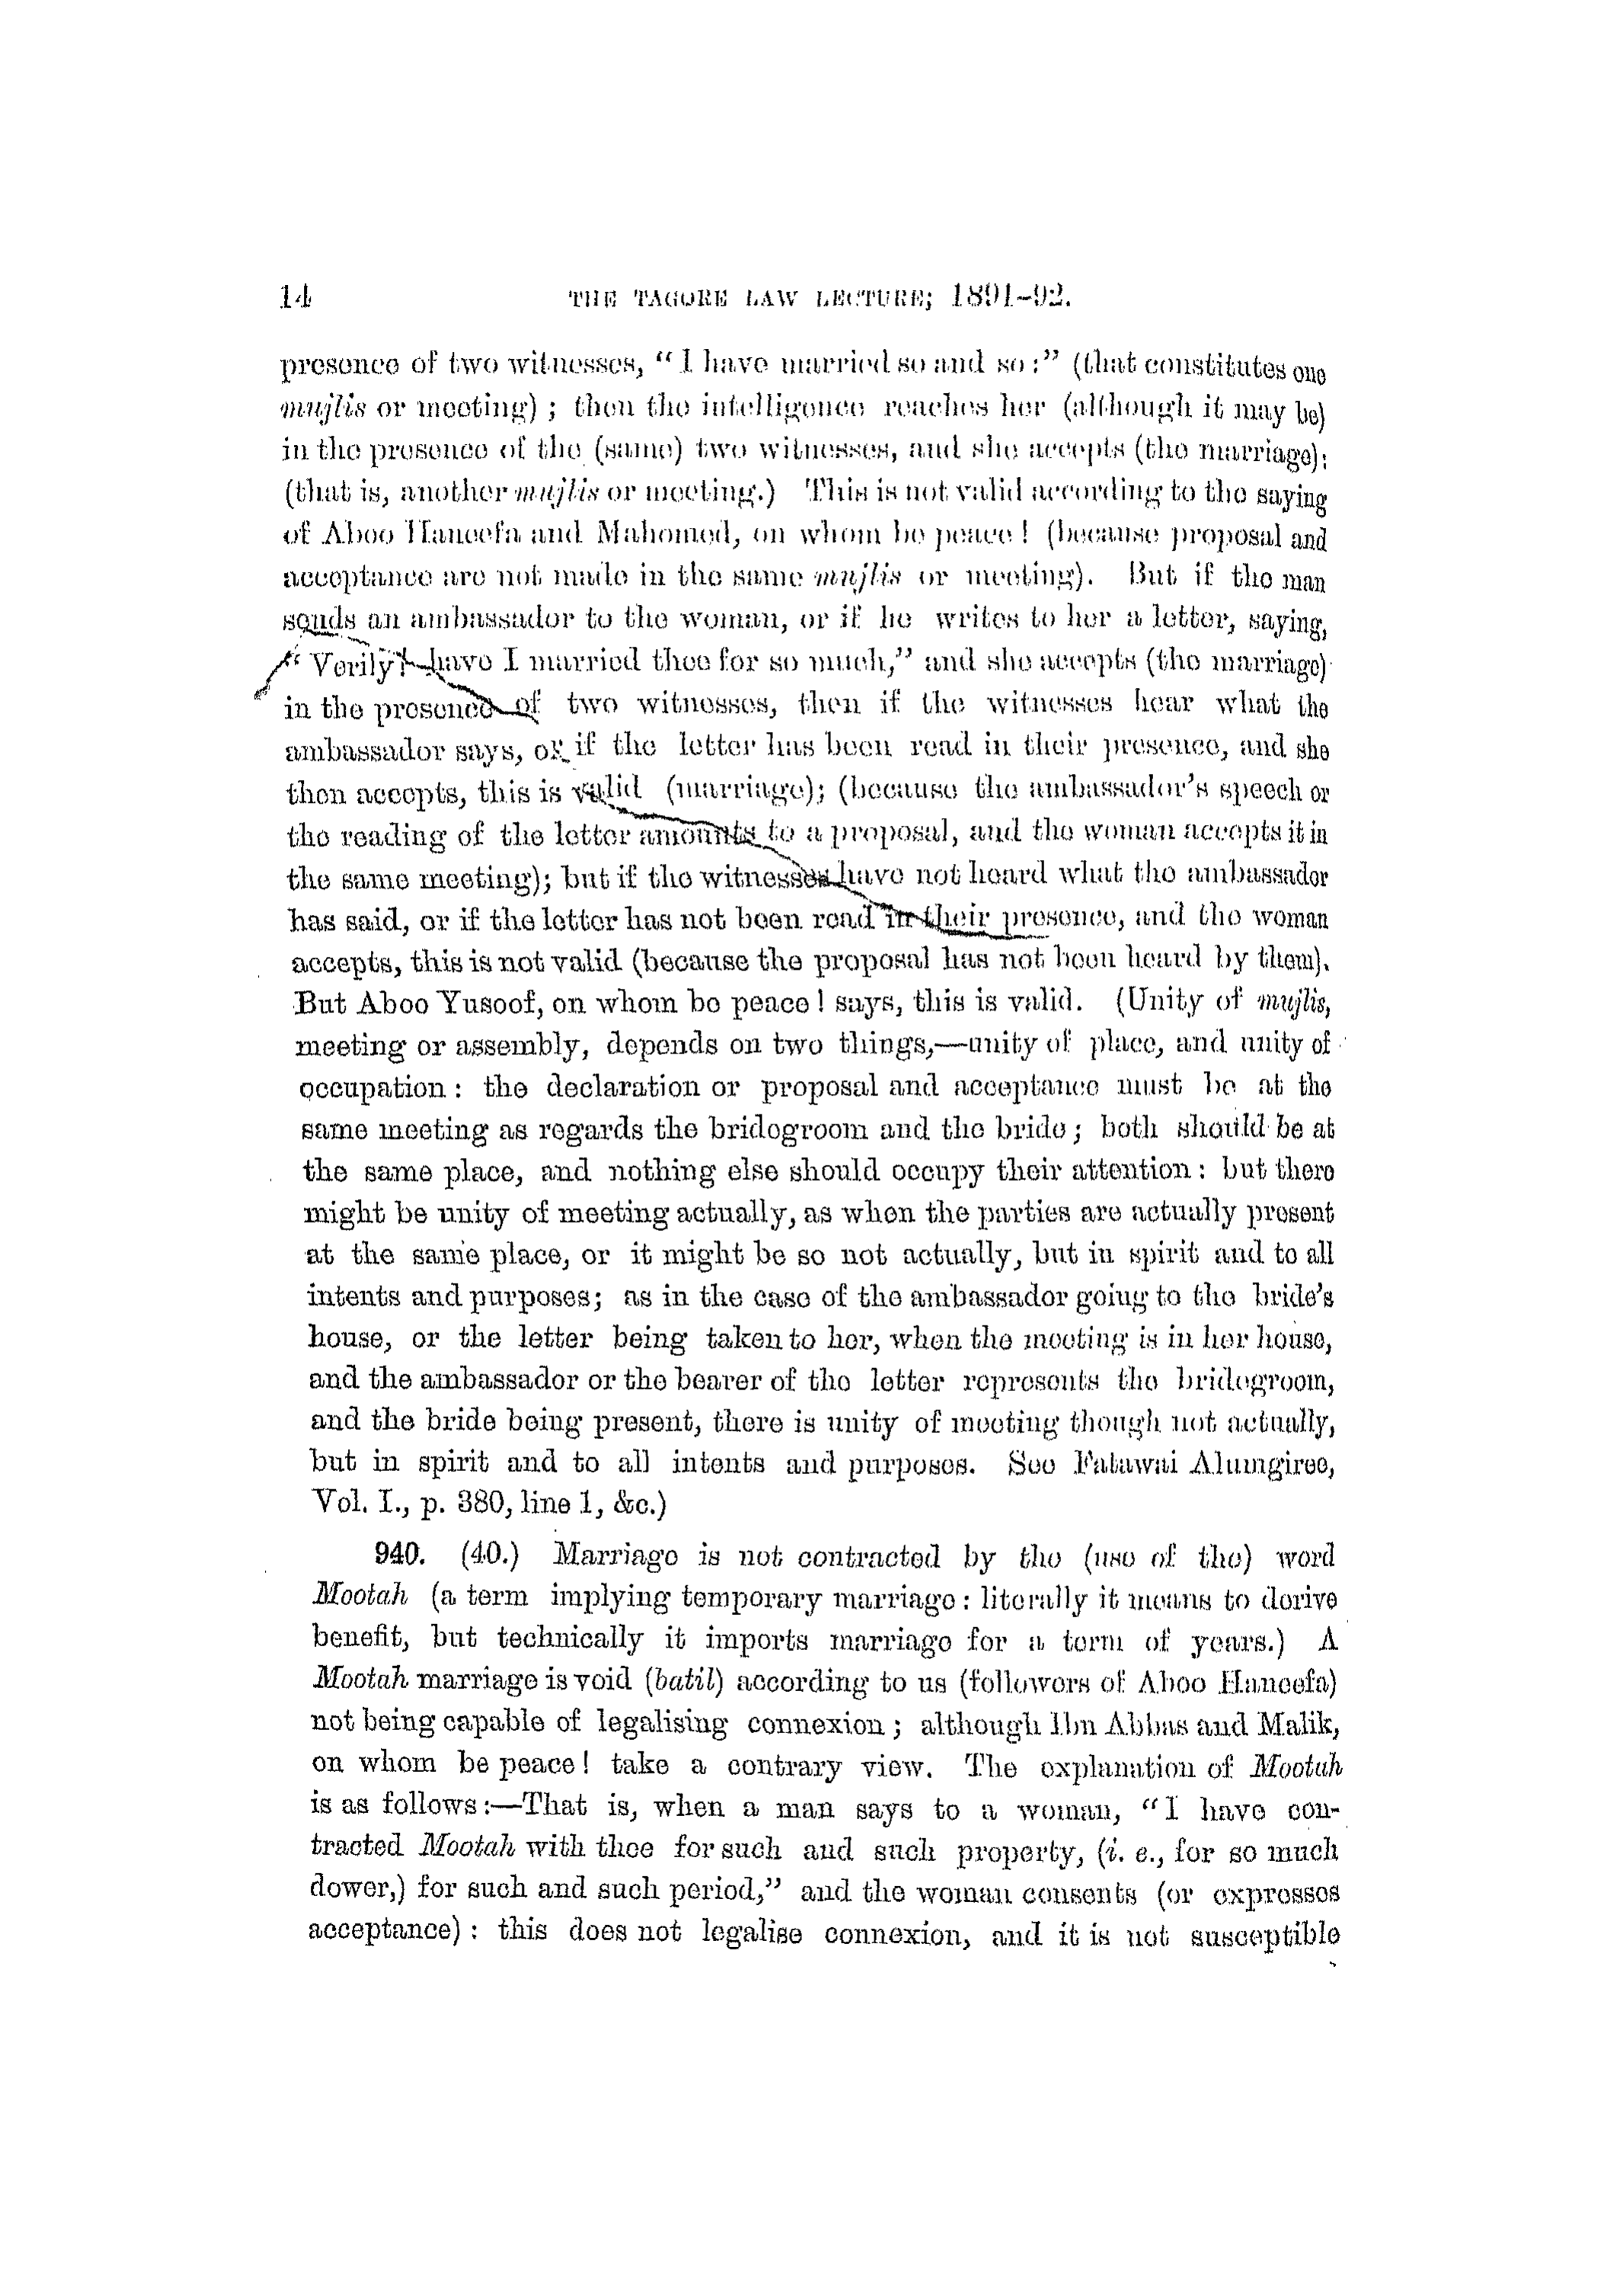 14 THE TAGORE LAW LECTURE; 1891-92.
presence of two witnesses, “I have married so and so:” (that constitutes one
mujlis or meeting) ; then the intelligence reaches her (although it may be)
in the presence of the (same) two witnesses, and she accepts (the marriage);
(that is, another mujlis or meeting.) This is not valid according to the saying
of Aboo Haneefa and Mahomed, on whom be peace ! (because proposal and
acceptance are not made in the same mujlis or meeting). But if the man
sends an ambassador to the woman, or if he writes to her a letter, saying,
“ Verily ! have I married thee for so much,” and she accepts (the marriage)
in the presence of two witnesses, then if the witnesses hear what the
ambassador says, or if the letter has been read in their presence, and she
then accepts, this is valid (marriage); (because the ambassador’s speech or
the reading of the letter amounts to a proposal, and the woman accepts it in
the same meeting); but if the witnesses have not heard what the ambassador
has said, or if the letter has not been read in their presence, and the woman
accepts, this is not valid (because the proposal has not been heard by them).
But Aboo Yusoof, on whom be peace ! says, this is valid. (Unity of mujlis,
meeting or assembly, depends on two things,—unity of place, and unity of
occupation : the declaration or proposal and acceptance must be at the
same meeting as regards the bridegroom and the bride ; both should be at
the same place, and nothing else should occupy their attention : but there
might be unity of meeting actually, as when the parties are actually present
at the same place, or it might be so not actually, but in spirit and to all
intents and purposes; as in the case of the ambassador going to the bride’s
house, or the letter being taken to her, when the meeting is in her house,
and the ambassador or the bearer of the letter represents the bridegroom,
and the bride being present, there is unity of meeting though not actually,
but in spirit and to all intents and purposes. See Fatawai Alumgiree,
Vol. I., p. 380, line 1, &c.)
940. (40.) Marriage is not contracted by the (use of the) word
Mootah (a term implying temporary marriage : literally it means to derive
benefit, but technically it imports marriage for a term of years.) A
Mootah marriage is void (batil) according to us (followers of Aboo Haneefa)
not being capable of legalising connexion ; although Ibn Abbas and Malik,
on whom be peace ! take a contrary view. The explanation of Mootah
is as follows :—That is, when a man says to a woman, “I have con-
tracted Mootah with thee for such and such property, (i. e., for so much
dower,) for such and such period,” and the woman consents (or expresses
acceptance) : this does not legalise connexion, and it is not susceptible